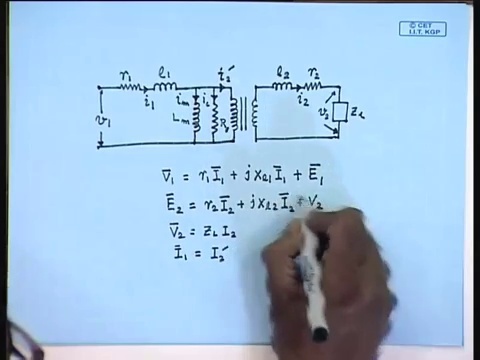 © CET
I.I.T. KGP
r₁ l₁ i₂′ l₂ r₂
i₁ iₘ i_c i₂
v₁ Lₘ v₂ Z_L
V̄₁ = r₁Ī₁ + jx_{l1}Ī₁ + Ē₁
Ē₂ = r₂Ī₂ + jx_{l2}Ī₂ + V₂
V̄₂ = Z_L I₂
Ī₁ = I₂′